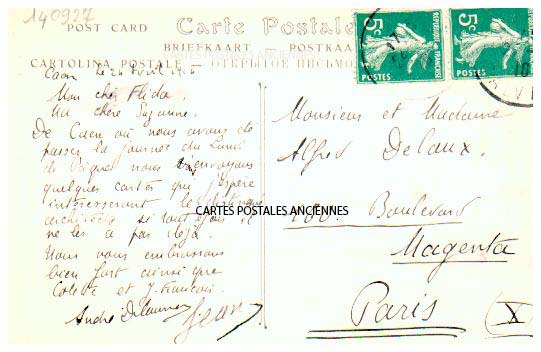 140927
POST CARD
Carte Postale
BRIEFKAART
POSTKAA
CARTOLINA POSTALE — ОТКРЫТОЕ ПИСЬМО
5c
REPUBLIQUE FRANÇAISE
POSTES
5c
POSTES
Caen le 24 Avril 19
Mon cher
Ma chère Suzanne.
De Caen où nous avons
passer la journée du Lundi
de nous envoyons
quelques cartes que j'espère
intéresseront le
architecte si toutefois il
ne les a pas déjà.
Nous vous embrassons
bien fort ainsi que
Colette et J-François.
André Jean
Monsieur et Madame
Alfred Delaux.
CARTES POSTALES ANCIENNES
100. Boulevard
Magenta
Paris
(X)